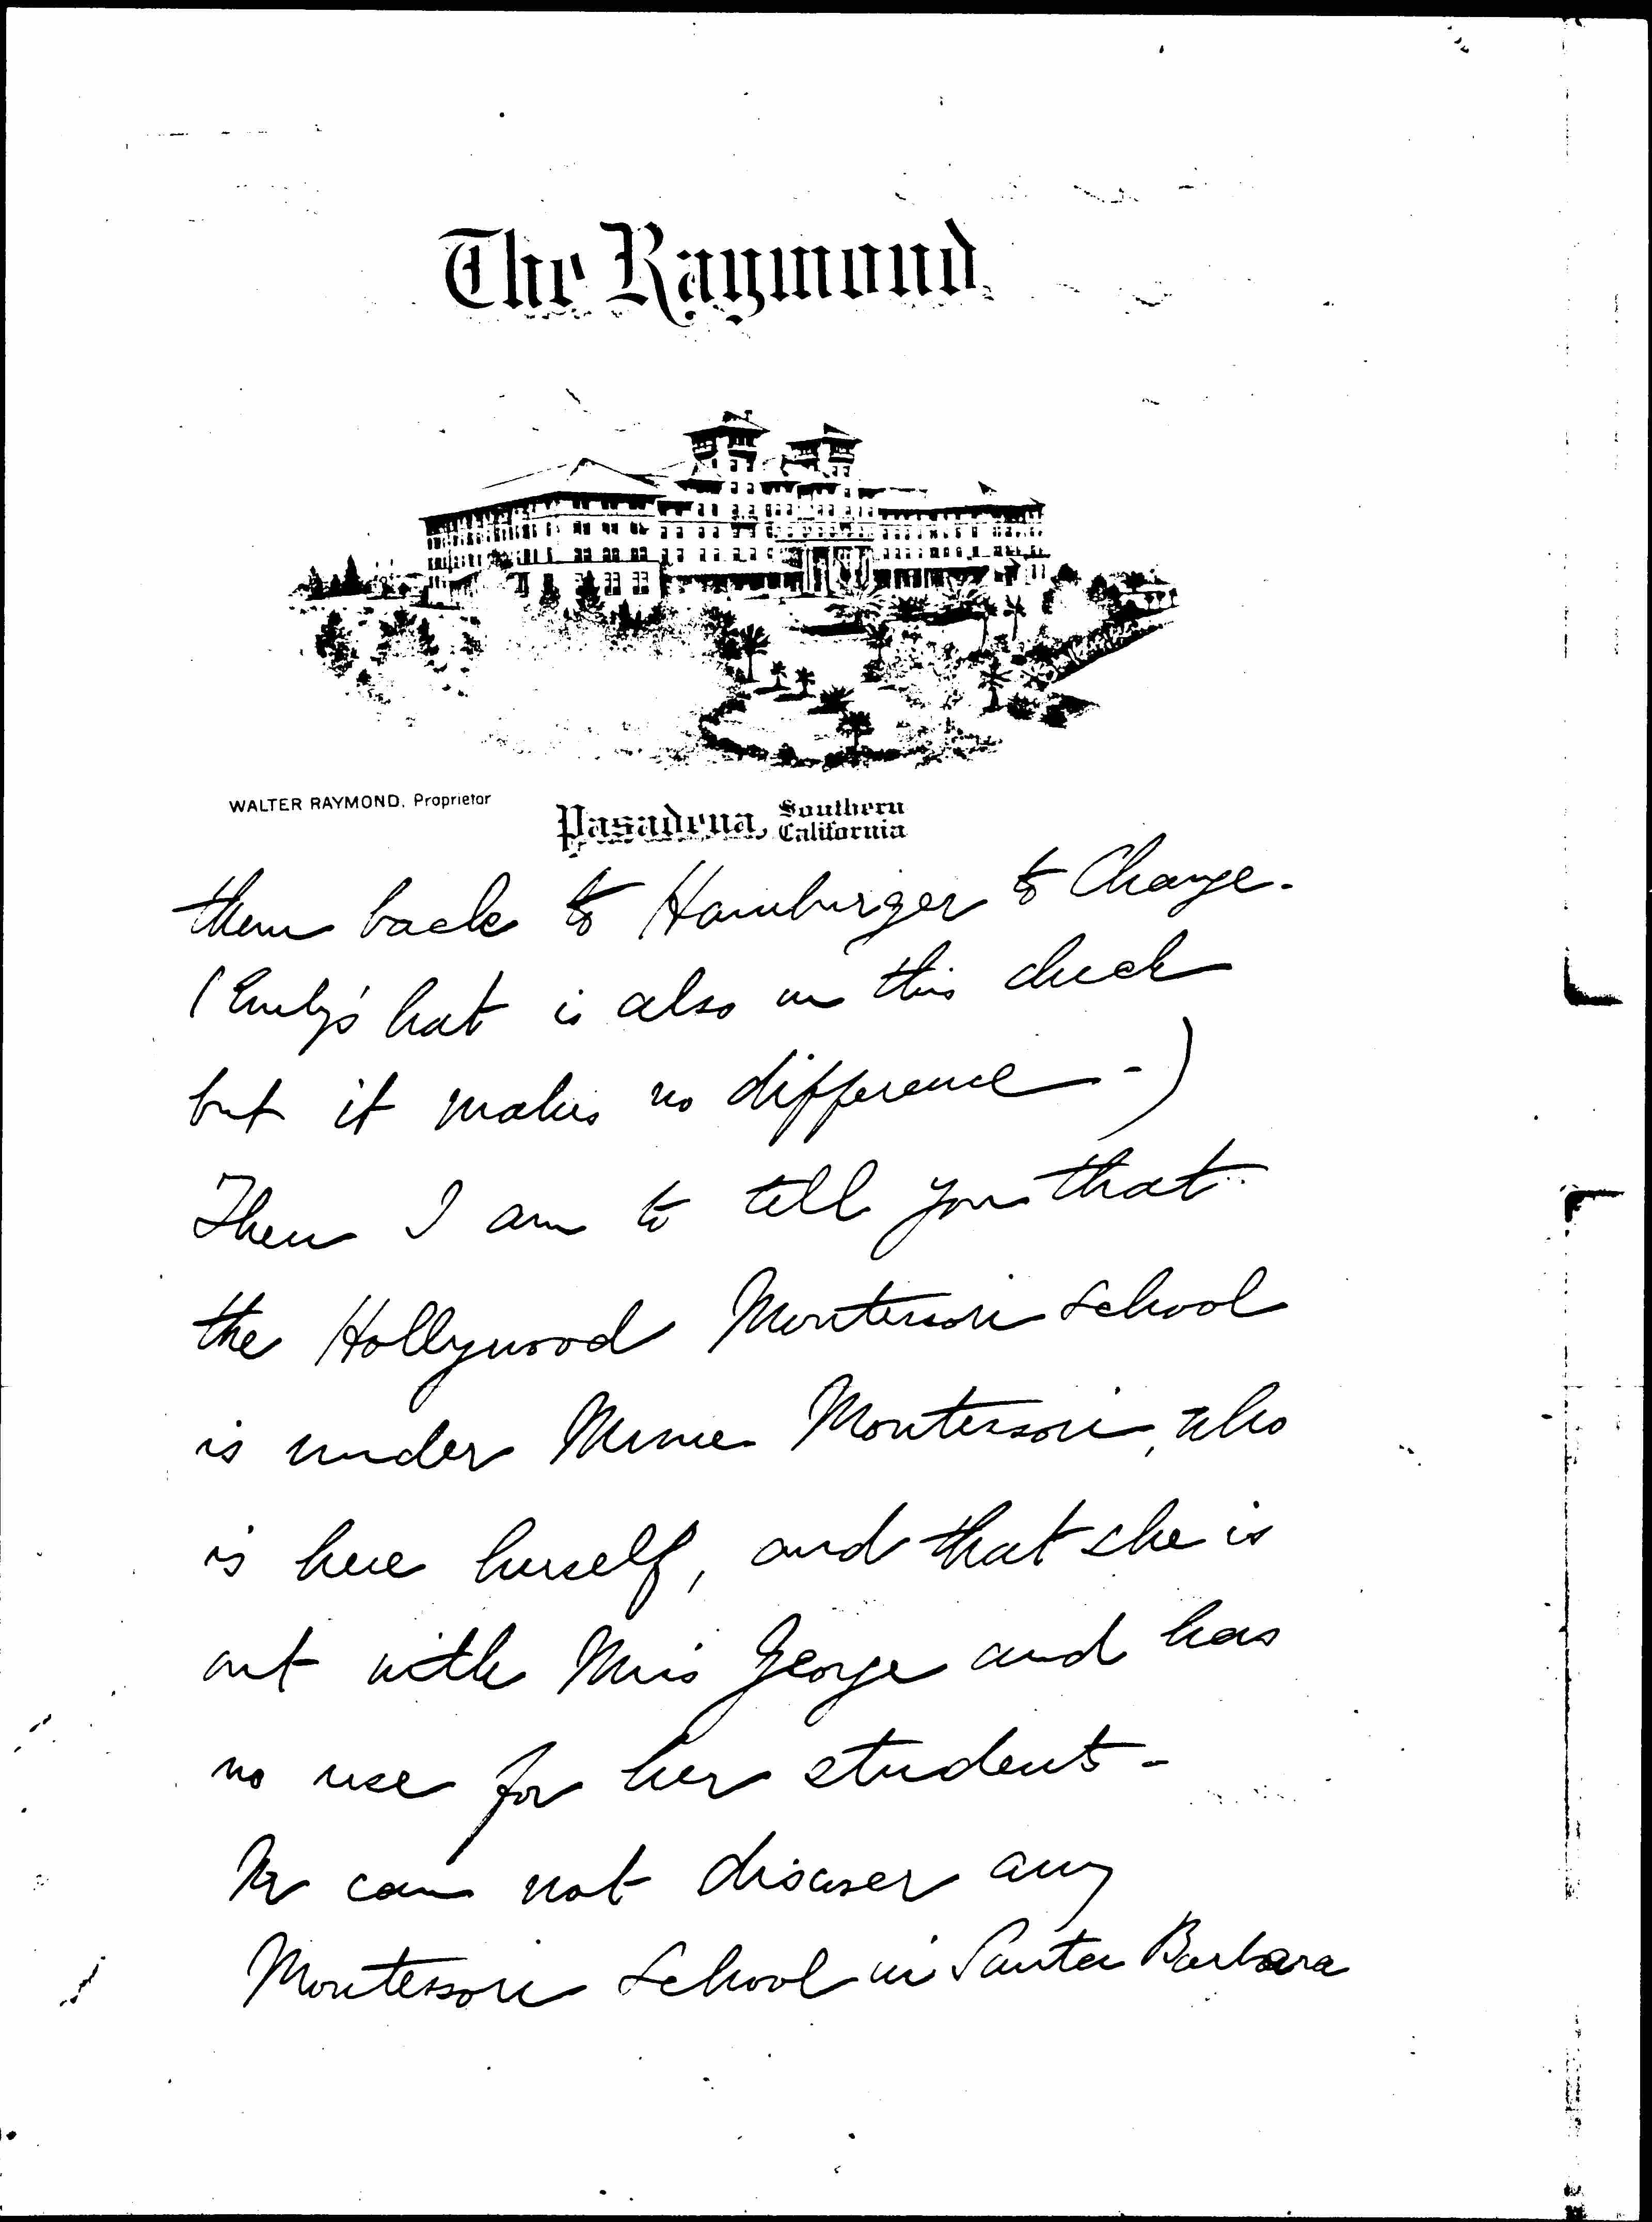 The Raymond
WALTER RAYMOND, Proprietor
Pasadena, Southern California
them back to Hamburger to Change.
(Emily's hat is also in this check
but it makes no difference -)
Then I am to tell you that
the Hollywood Montessori School
is under Mme Montessori, who
is here herself, and that she is
out with Miss George and has
no use for her students -
We can not discover any
Montessori School in Santa Barbara